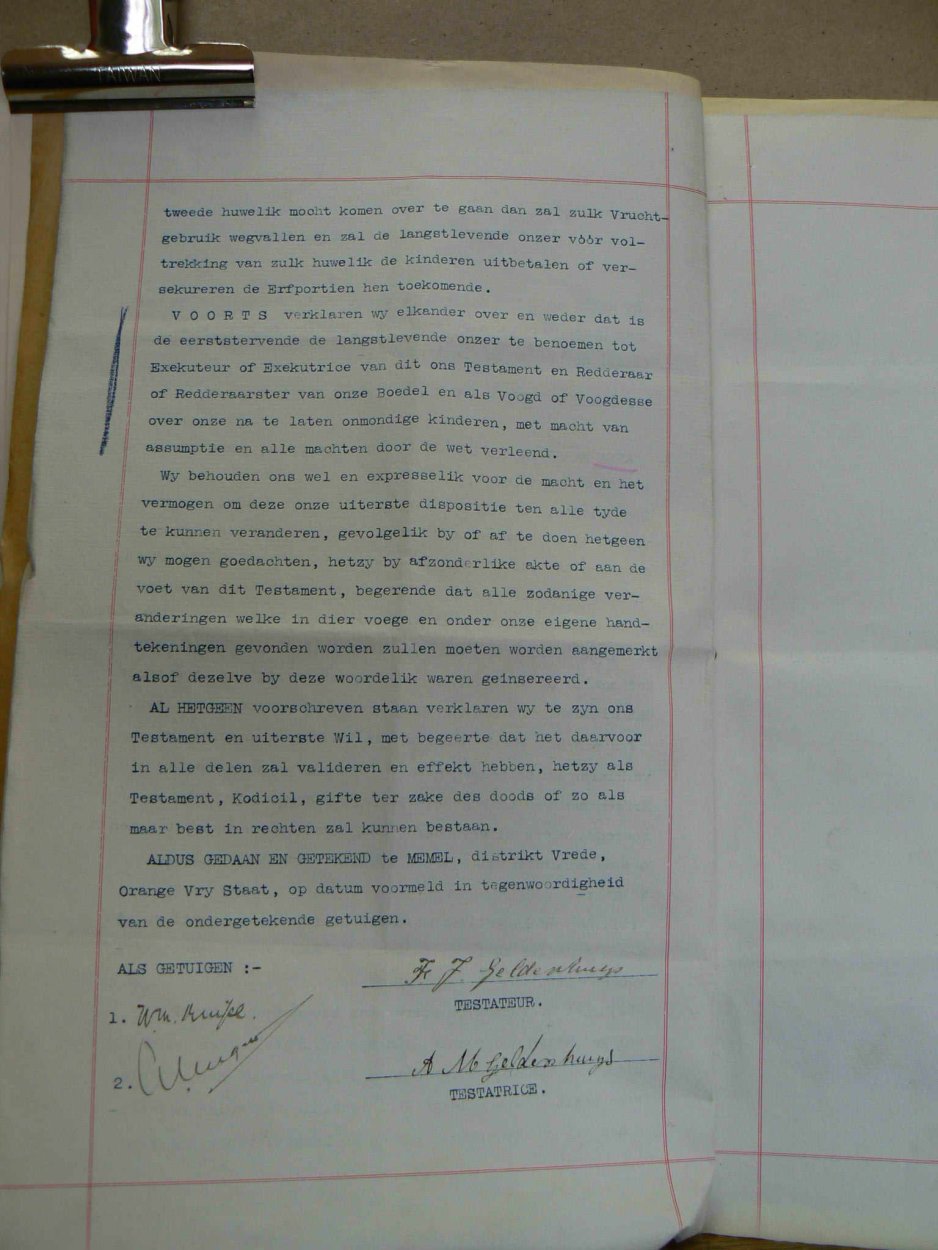 TAIWAN
tweede huwelik mocht komen over te gaan dan zal zulk Vrucht-
gebruik wegvallen en zal de langstlevende onzer vòòr vol-
trekking van zulk huwelik de kinderen uitbetalen of ver-
sekureren de Erfportien hen toekomende.
V O O R T S verklaren wy elkander over en weder dat is
de eerststervende de langstlevende onzer te benoemen tot
Exekuteur of Exekutrice van dit ons Testament en Redderaar
of Redderaarster van onze Boedel en als Voogd of Voogdesse
over onze na te laten onmondige kinderen, met macht van
assumptie en alle machten door de wet verleend.
Wy behouden ons wel en expresselik voor de macht en het
vermogen om deze onze uiterste dispositie ten alle tyde
te kunnen veranderen, gevolgelik by of af te doen hetgeen
wy mogen goedachten, hetzy by afzonderlike akte of aan de
voet van dit Testament, begerende dat alle zodanige ver-
anderingen welke in dier voege en onder onze eigene hand-
tekeningen gevonden worden zullen moeten worden aangemerkt
alsof dezelve by deze woordelik waren geinsereerd.
AL HETGEEN voorschreven staan verklaren wy te zyn ons
Testament en uiterste Wil, met begeerte dat het daarvoor
in alle delen zal valideren en effekt hebben, hetzy als
Testament, Kodicil, gifte ter zake des doods of zo als
maar best in rechten zal kunnen bestaan.
ALDUS GEDAAN EN GETEKEND te MEMEL, distrikt Vrede,
Orange Vry Staat, op datum voormeld in tegenwoordigheid
van de ondergetekende getuigen.
ALS GETUIGEN :-
F J Geldenhuys
TESTATEUR.
1. Wm.
2.
A M Geldenhuys
TESTATRICE.